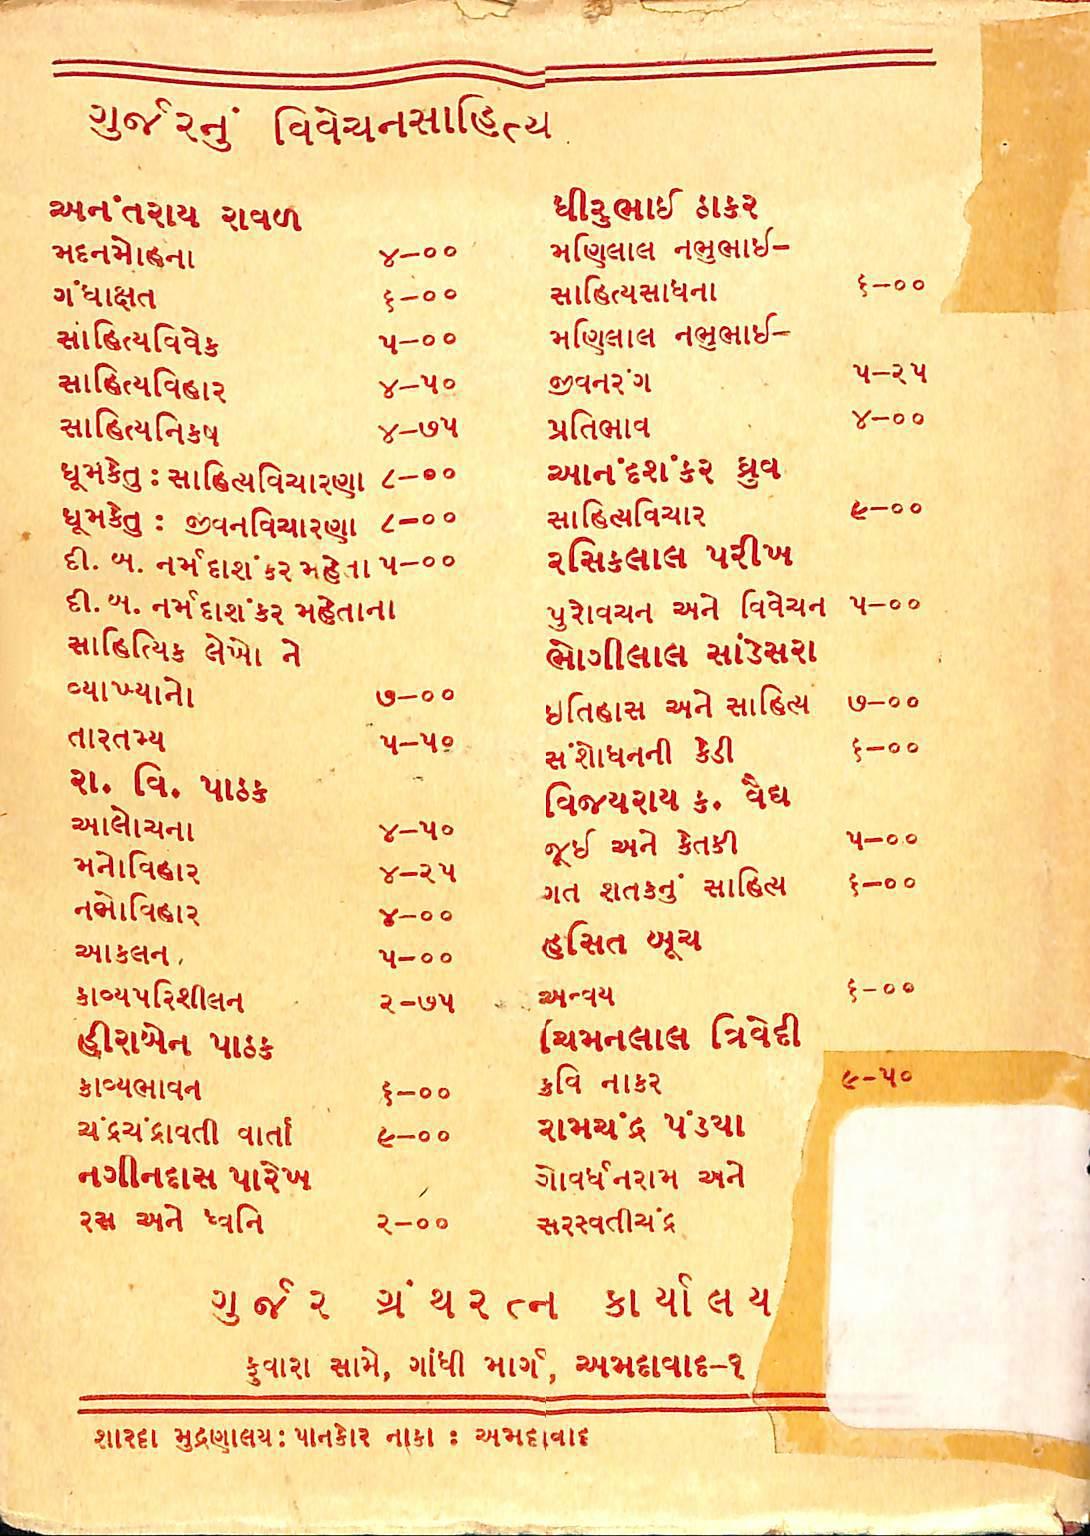 ગુર્જરનું વિવેચનસાહિત્ય
અનંતરાય રાવળ
મદનમોહના ૪-૦૦
ગંધાક્ષત ૬-૦૦
સાહિત્યવિવેક ૫-૦૦
સાહિત્યવિહાર ૪-૫૦
સાહિત્યનિકષ ૪-૭૫
ધૂમકેતુ : સાહિત્યવિચારણા ૮-૦૦
ધૂમકેતુ : જીવનવિચારણા ૮-૦૦
દી. બ. નર્મદાશંકર મહેતા ૫-૦૦
દી. બ. નર્મદાશંકર મહેતાના
સાહિત્યિક લેખો ને
વ્યાખ્યાનો ૭-૦૦
તારતમ્ય ૫-૫૦
રા. વિ. પાઠક
આલોચના ૪-૫૦
મનોવિહાર ૪-૨૫
નભોવિહાર ૪-૦૦
આકલન ૫-૦૦
કાવ્યપરિશીલન ૨-૭૫
હીરાબેન પાઠક
કાવ્યભાવન ૬-૦૦
ચંદ્રચંદ્રાવતી વાર્તા ૯-૦૦
નગીનદાસ પારેખ
રસ અને ધ્વનિ ૨-૦૦
ધીરુભાઈ ઠાકર
મણિલાલ નભુભાઈ-
સાહિત્યસાધના ૬-૦૦
મણિલાલ નભુભાઈ-
જીવનરંગ ૫-૨૫
પ્રતિભાવ ૪-૦૦
આનંદશંકર ધ્રુવ
સાહિત્યવિચાર ૯-૦૦
રસિકલાલ પરીખ
પુરોવચન અને વિવેચન ૫-૦૦
ભોગીલાલ સાંડેસરા
ઇતિહાસ અને સાહિત્ય ૭-૦૦
સંશોધનની કેડી ૬-૦૦
વિજયરાય ક. વૈદ્ય
જૂઈ અને કેતકી ૫-૦૦
ગત શતકનું સાહિત્ય ૬-૦૦
હસિત બૂચ
અન્વય ૬-૦૦
ચિમનલાલ ત્રિવેદી
કવિ નાકર ૯-૫૦
રામચંદ્ર પંડયા
ગોવર્ધનરામ અને
સરસ્વતીચંદ્ર
ગુર્જર ગ્રંથરત્ન કાર્યાલય
ફુવારા સામે, ગાંધી માર્ગ, અમદાવાદ-૧
શારદા મુદ્રણાલય : પાનકોર નાકા : અમદાવાદ